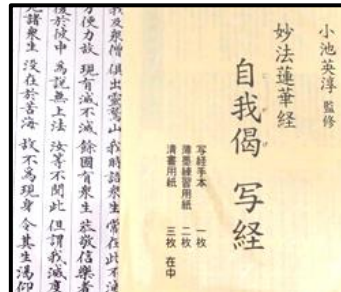 小池英淳 監修
妙法蓮華経
自我偈 写経
写経手本 一枚
薄墨練習用紙 二枚
清書用紙 三枚 在中
我及衆僧 俱出靈鷲山 我時語衆生 常在此不滅
方便力故 現有滅不滅 餘國有衆生 恭敬信樂者
復於彼中 為說無上法 汝等不聞此 但謂我滅度
見諸衆生 沒在於苦海 故不為現身 令其生渴仰